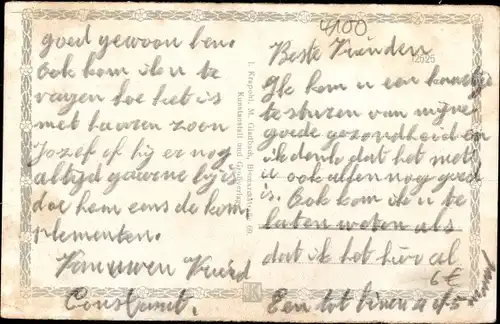 4100
Beste Vrienden
12025
Ik kom u een kaartje
te sturen van mijne
goede gezondheid en
ik denk dat het met
u ook allen nog goed
is. Ook kom ik u te
laten weten als
dat ik het hier al
6€
goed gewoon ben.
Ook kom ik u te
vragen hoe het is
met haaren zoon
Jozef of hij er nog
altijd gaarne bij is
doe hem eens de kom
plementen.
Van uwen Vriend
Constant.
Een tot
I. Krapohl, M. Gladbach, Bismarckstr. 69.
Kunstanstalt und Großverlag
K